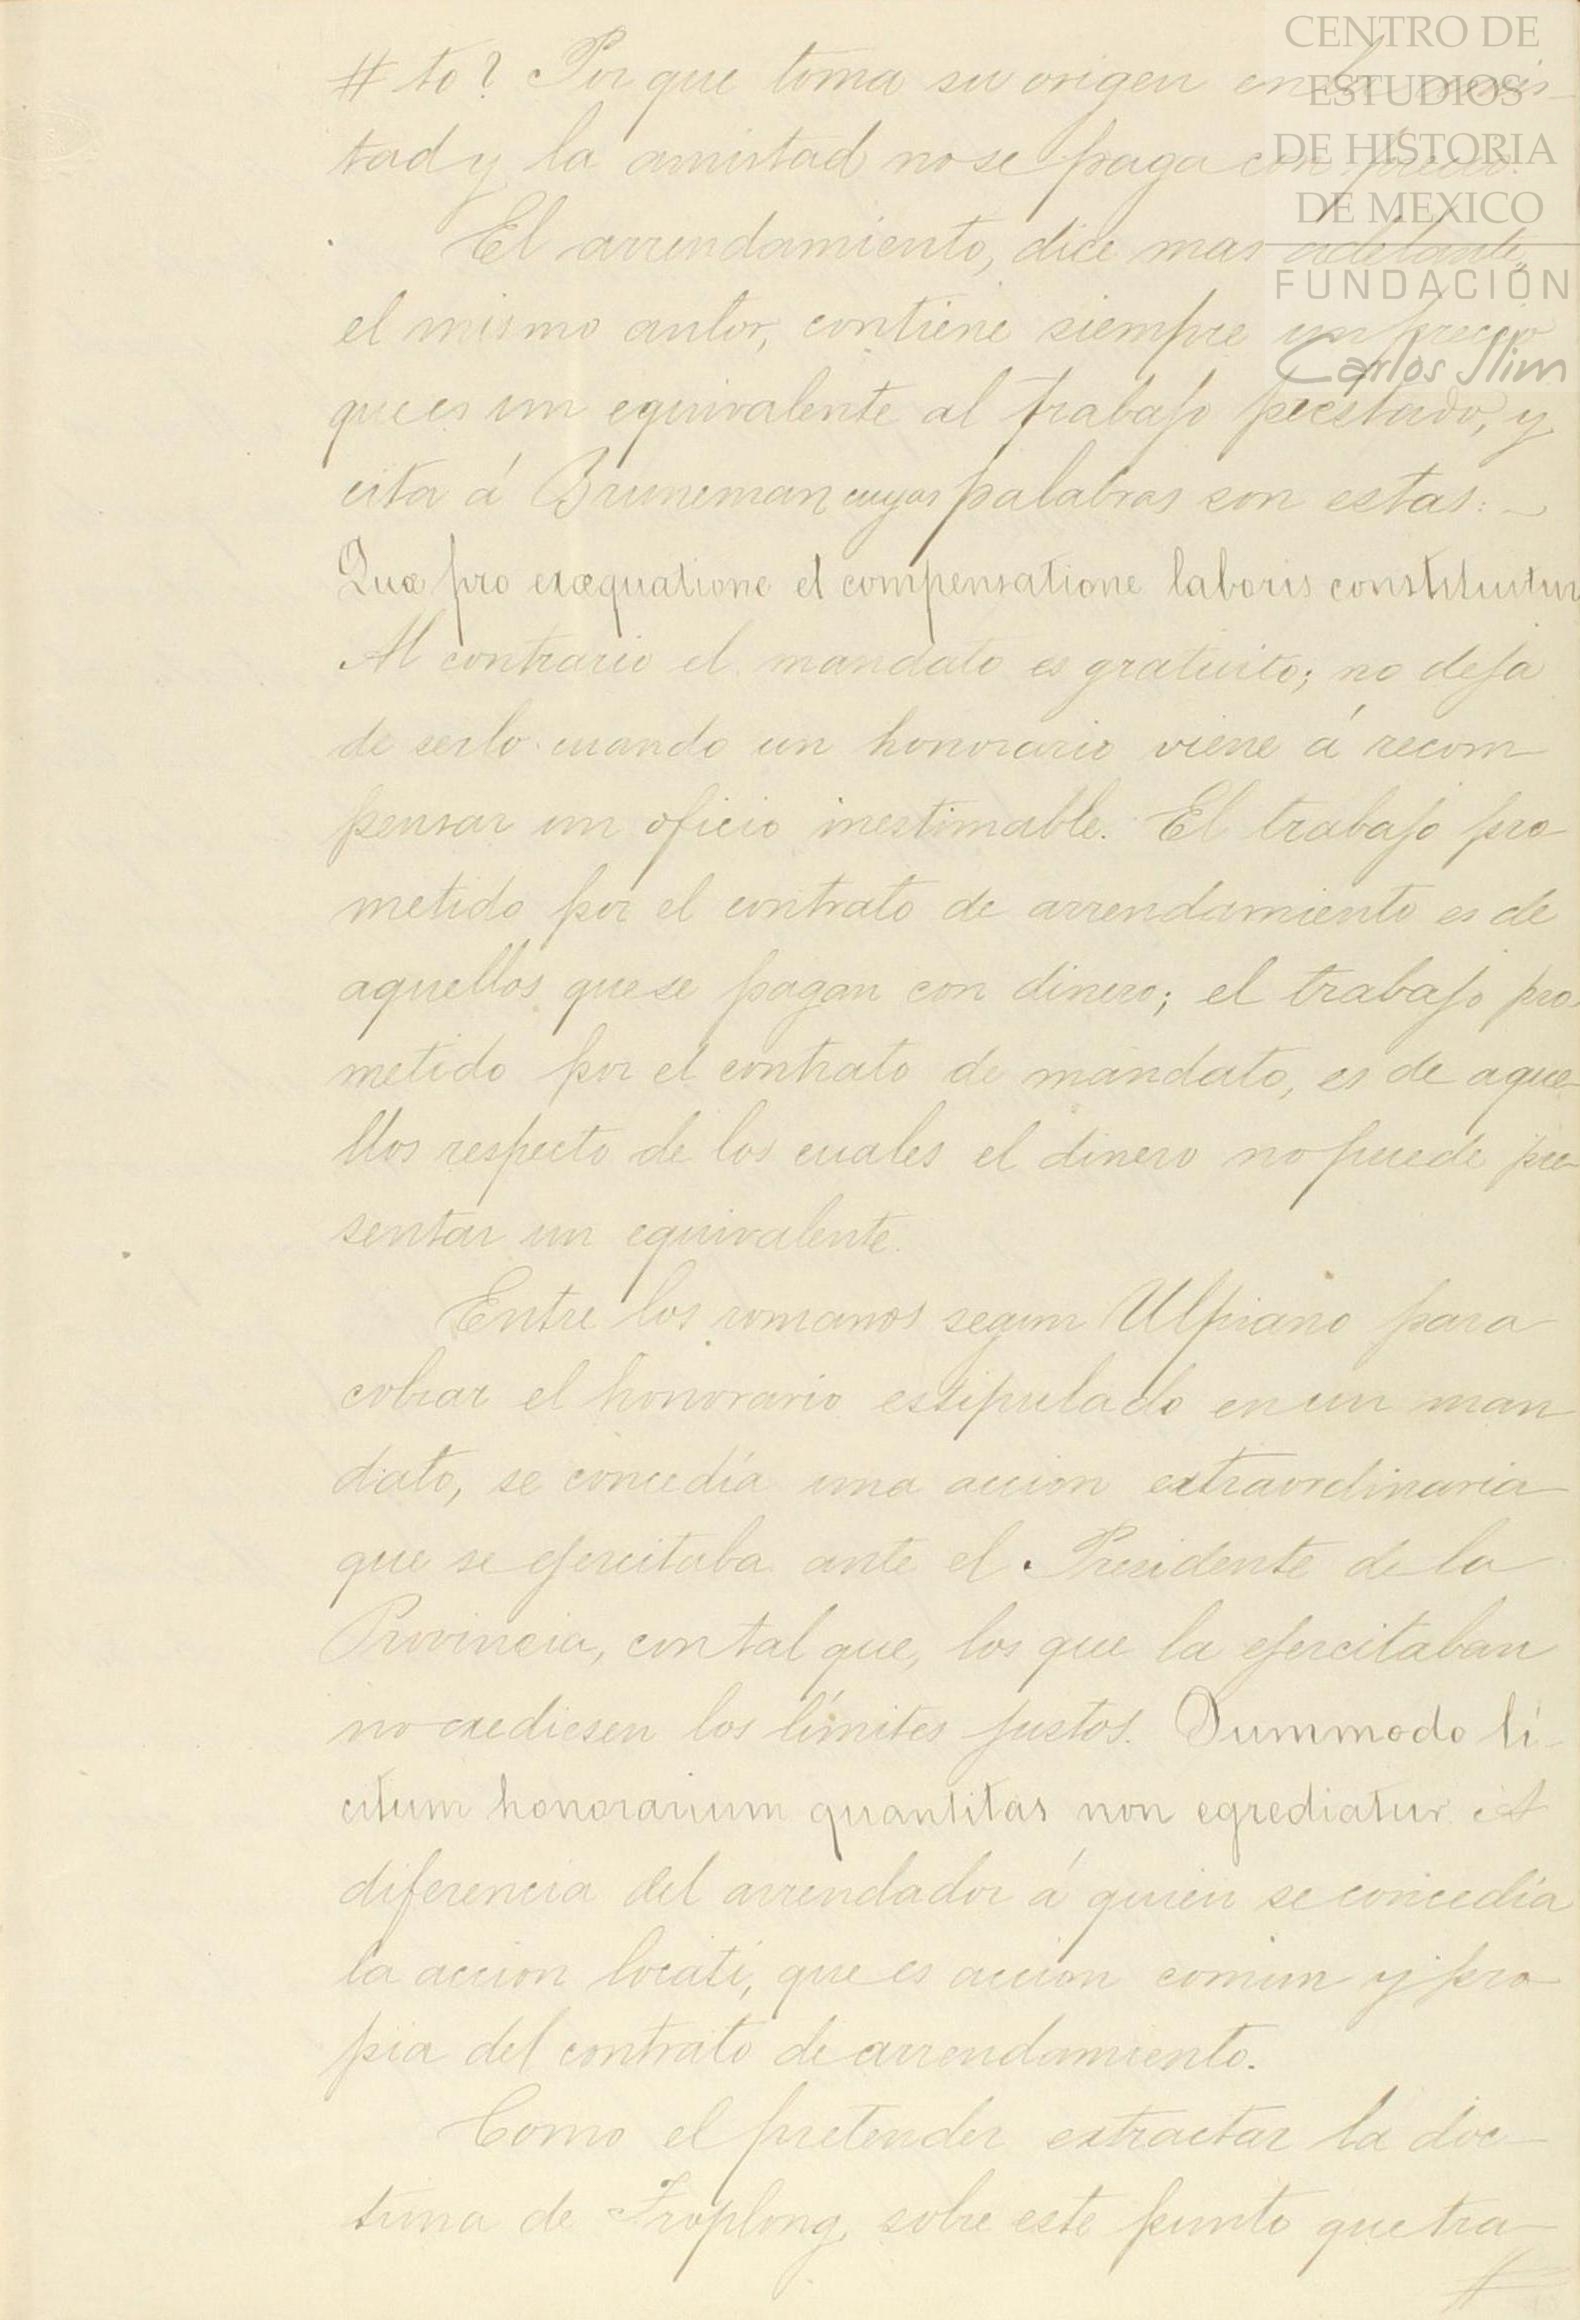 CENTRO DE
ESTUDIOS
DE HISTORIA
DE MEXICO
FUNDACIÓN
Carlos Slim
# to? Por que toma su origen en la amis-
tad y la amistad no se paga con precio.
El arrendamiento, dice mas adelante,
el mismo autor, contiene siempre un precio
que es un equivalente al trabajo prestado, y
cita á Bruneman cuyas palabras son estas: -
Quæ pro exæquatione et compensatione laboris constituitur
Al contrario el mandato es gratuito; no deja
de serlo cuando un honorario viene á recom
pensar un oficio inestimable. El trabajo pro
metido por el contrato de arrendamiento es de
aquellos que se pagan con dinero; el trabajo pro
metido por el contrato de mandato, es de aque
llos respecto de los cuales el dinero no puede pre
sentar un equivalente.
Entre los romanos segun Ulpiano para
cobrar el honorario estipulado en un man
dato, se concedía una accion extraordinaria
que se ejercitaba ante el Presidente de la
Provincia, con tal que, los que la ejercitaban
no exediesen los límites justos. Dummodo li-
citum honorarium quantitas non egrediatur A
diferencia del arrendador á quien se concedía
la accion locati, que es accion comun y pro
pia del contrato de arrendamiento.
Como el pretender extractar la doc-
trina de Troplong, sobre este punto que tra-
#